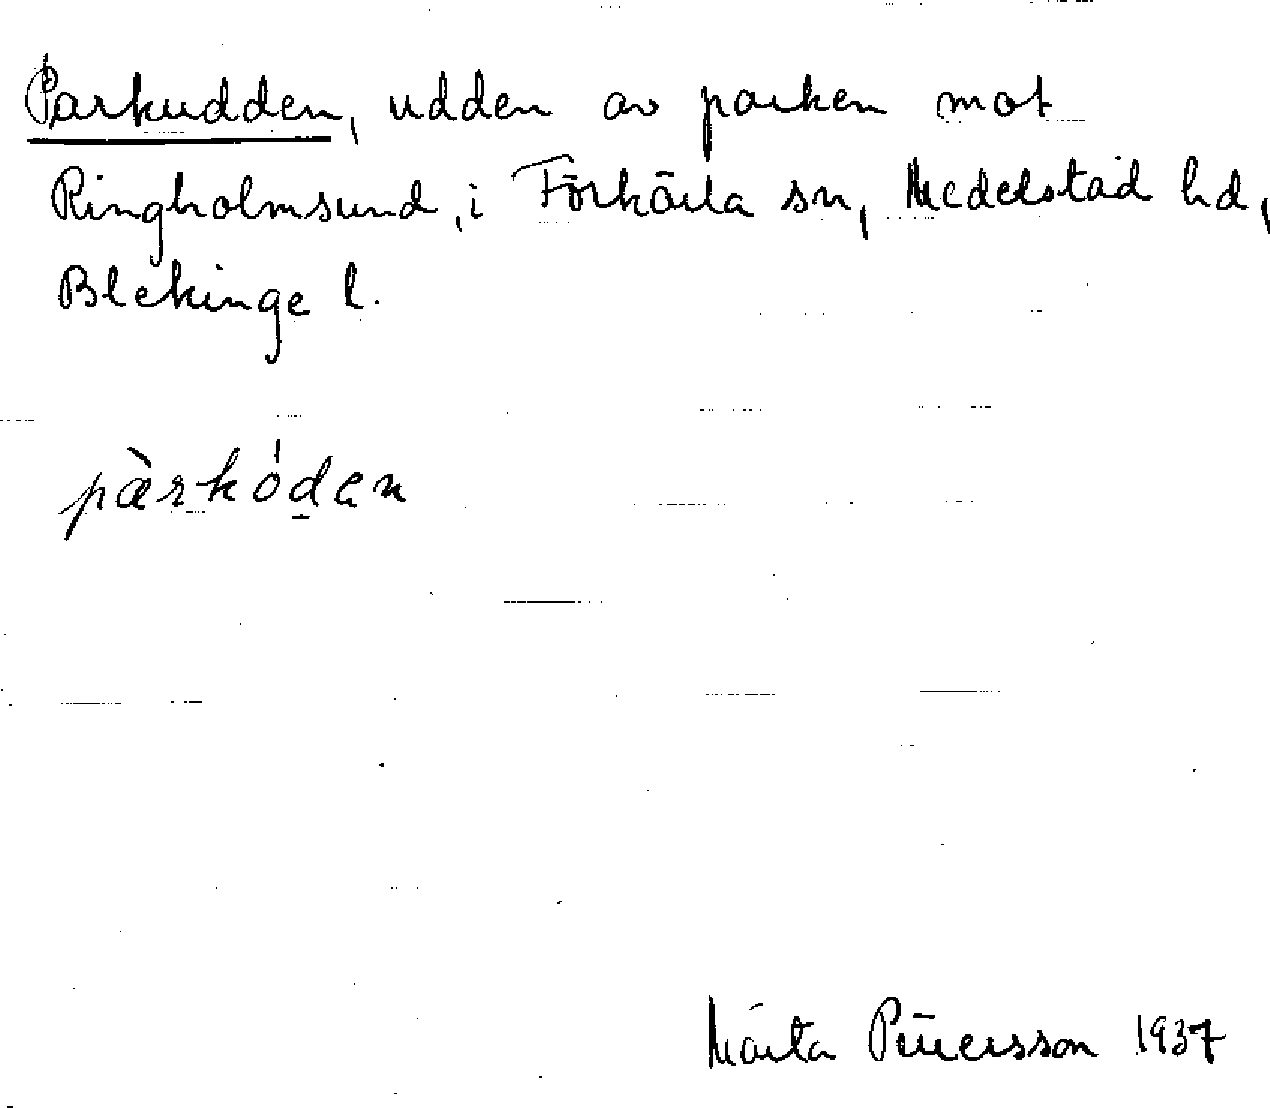 Parkudden, udden av parken mot
Ringholmsund, i Förkärla sn, Medelstad hd,
Blekinge l.
pàrkóden
Märta 1937